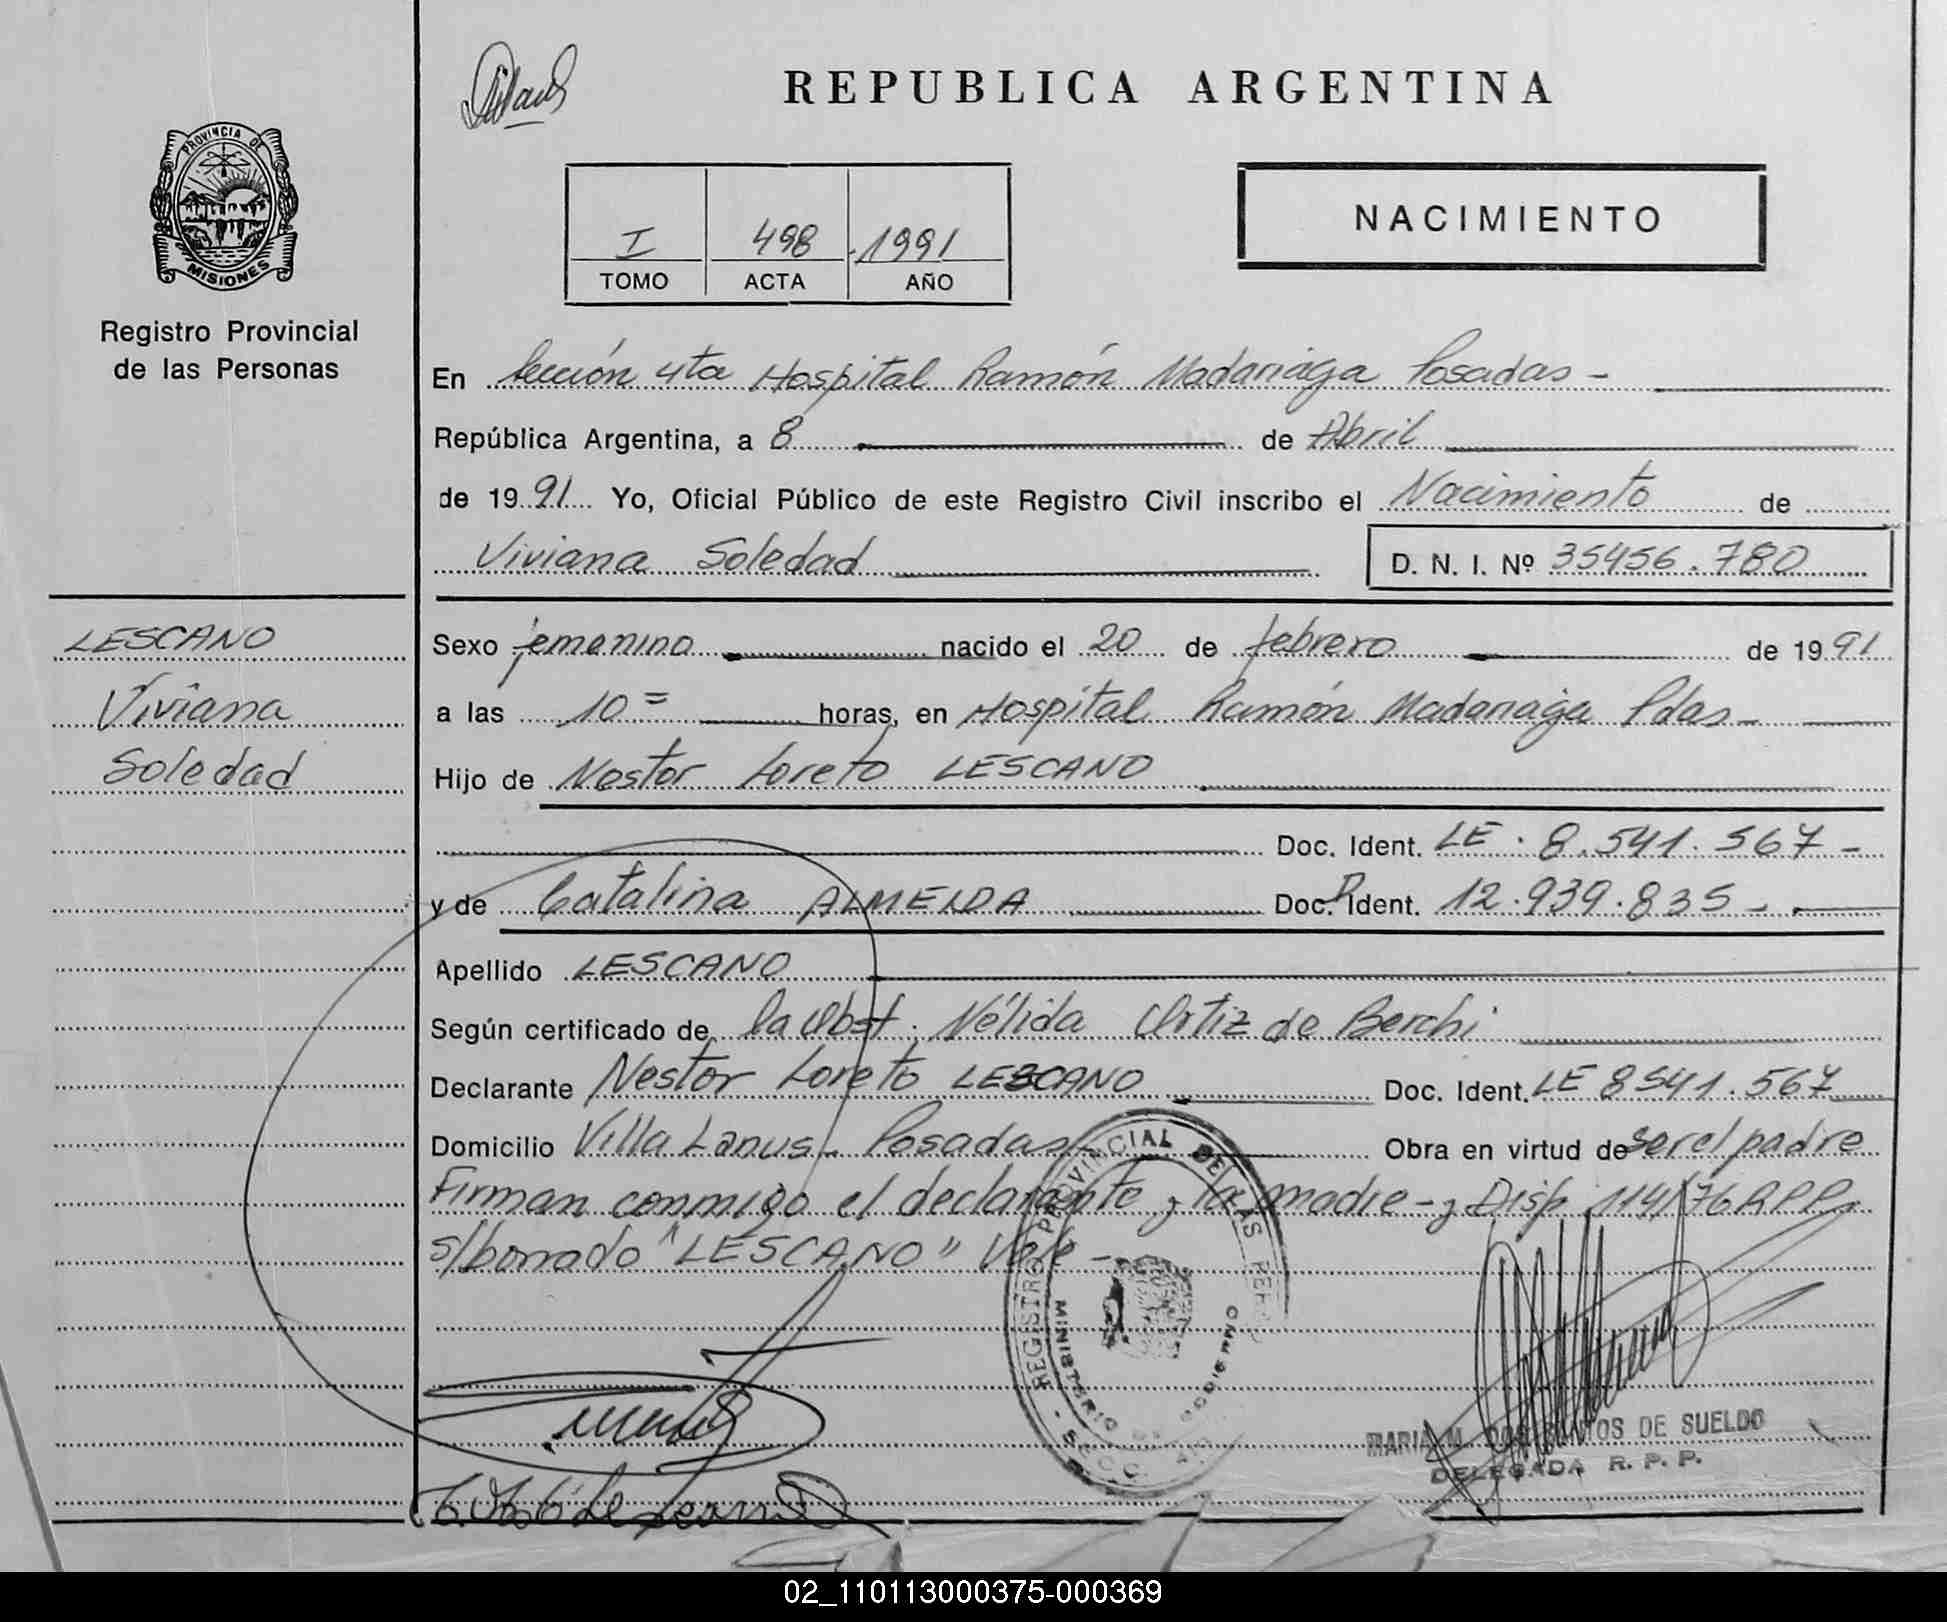 REPUBLICA ARGENTINA
PROVINCIA DE
MISIONES
Registro Provincial
de las Personas
I 498 1991
TOMO ACTA AÑO
NACIMIENTO
En Sección 4ta Hospital Ramón Madariaga Posadas -
República Argentina, a 8 de Abril
de 19 91 Yo, Oficial Público de este Registro Civil inscribo el Nacimiento de
Viviana Soledad D. N. I. Nº 35456.780
LESCANO
Viviana
Soledad
Sexo femenino nacido el 20 de febrero de 19 91
a las 10= horas, en Hospital Ramón Madariaga Pdas -
Hijo de Nestor Loreto LESCANO
Doc. Ident. LE. 8.541.567 -
y de Catalina ALMEIDA Doc. Ident. 12.939.835 -
Apellido LESCANO
Según certificado de la Obst. Nélida Ortiz de Berchi
Declarante Nestor Loreto LESCANO Doc. Ident. LE 8541.567
Domicilio Villa Lanus - Posadas - Obra en virtud de ser el padre
Firman conmigo el declarante y la madre - y Disp 114/76 RPP.
s/borrado "LESCANO" Vale -
REGISTRO PROVINCIAL DE LAS PERS
MINISTERIO DE GOBIERNO
MARIA M. DOS SANTOS DE SUELDO
DELEGADA R. P. P.
02_110113000375-000369